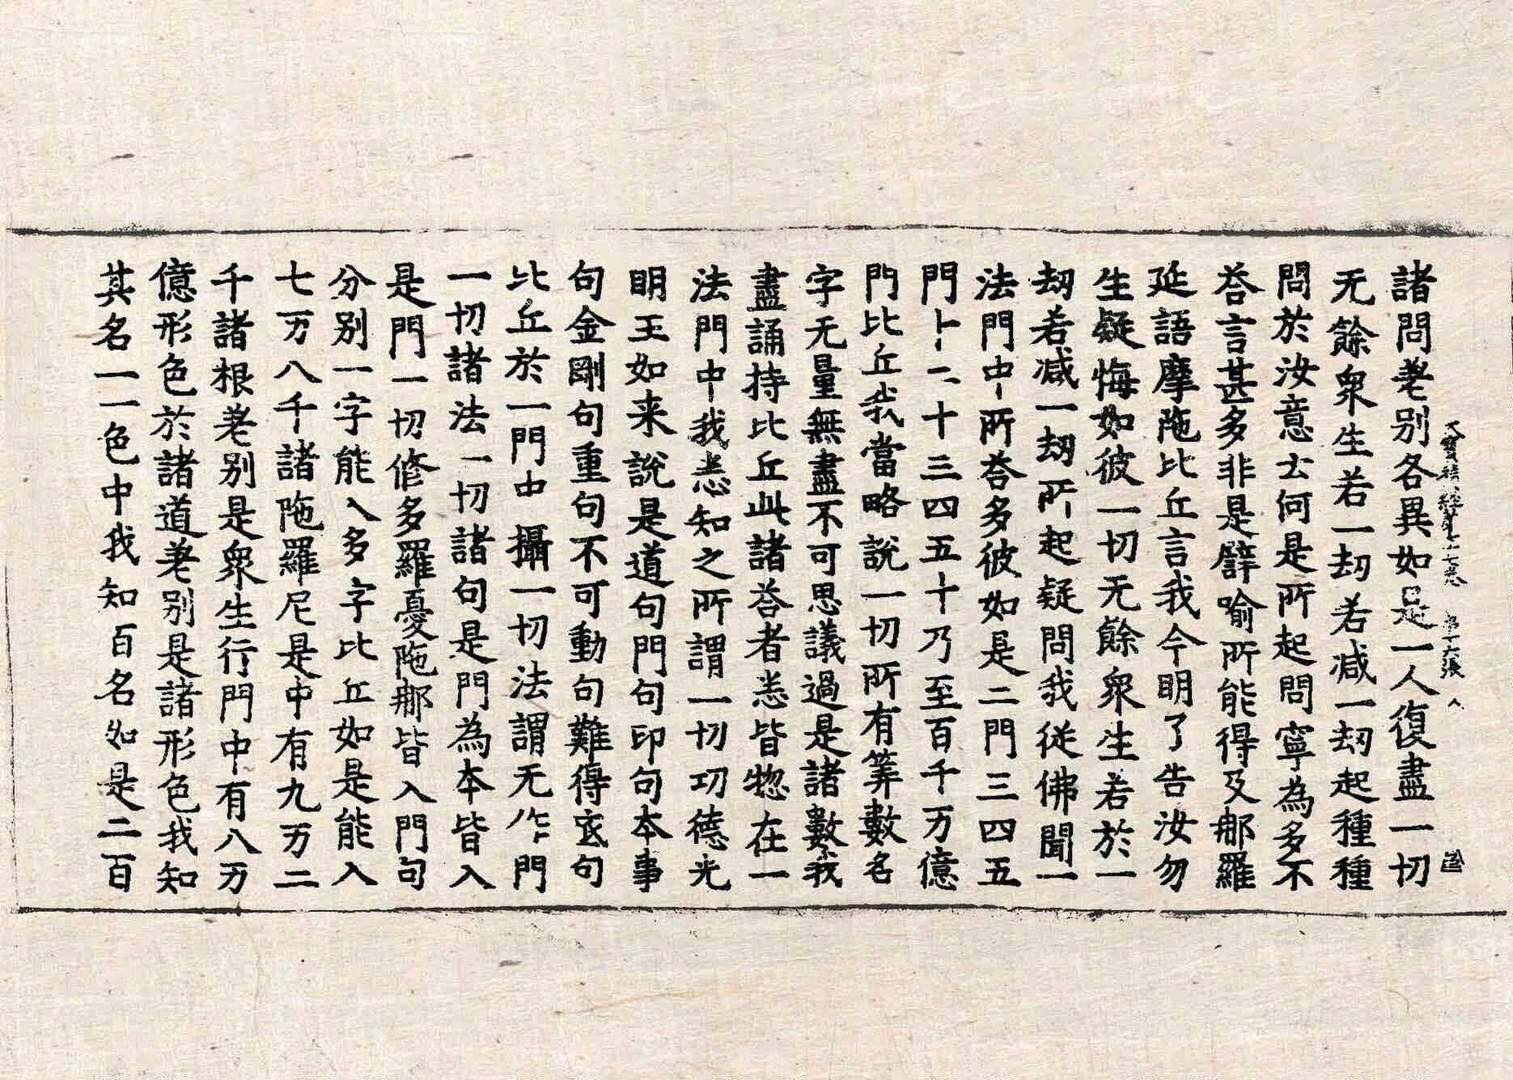 大寶積經第七十七卷 第十六張 人
諸問差別各異如是一人復盡一切
无餘衆生若一劫若减一劫起種種
問於汝意云何是所起問寧為多不
荅言甚多非是譬喻所能得及那羅
延語摩陁比丘言我今明了告汝勿
生疑悔如彼一切无餘衆生若於一
劫若减一劫所起疑問我從佛聞一
法門中所荅多彼如是二門三四五
門十二十三四五十乃至百千万億
門比丘我當略說一切所有筭數名
字无量無盡不可思議過是諸數我
盡誦持比丘此諸荅者悉皆惣在一
法門中我悉知之所謂一切功德光
明王如来說是道句門句印句本事
句金剛句重句不可動句難得底句
比丘於一門中攝一切法謂无作門
一切諸法一切諸句是門為本皆入
是門一切修多羅憂陁那皆入門句
分別一字能入多字比丘如是能入
七万八千諸陁羅尼是中有九万二
千諸根差別是衆生行門中有八万
億形色於諸道差別是諸形色我知
其名一一色中我知百名如是二百